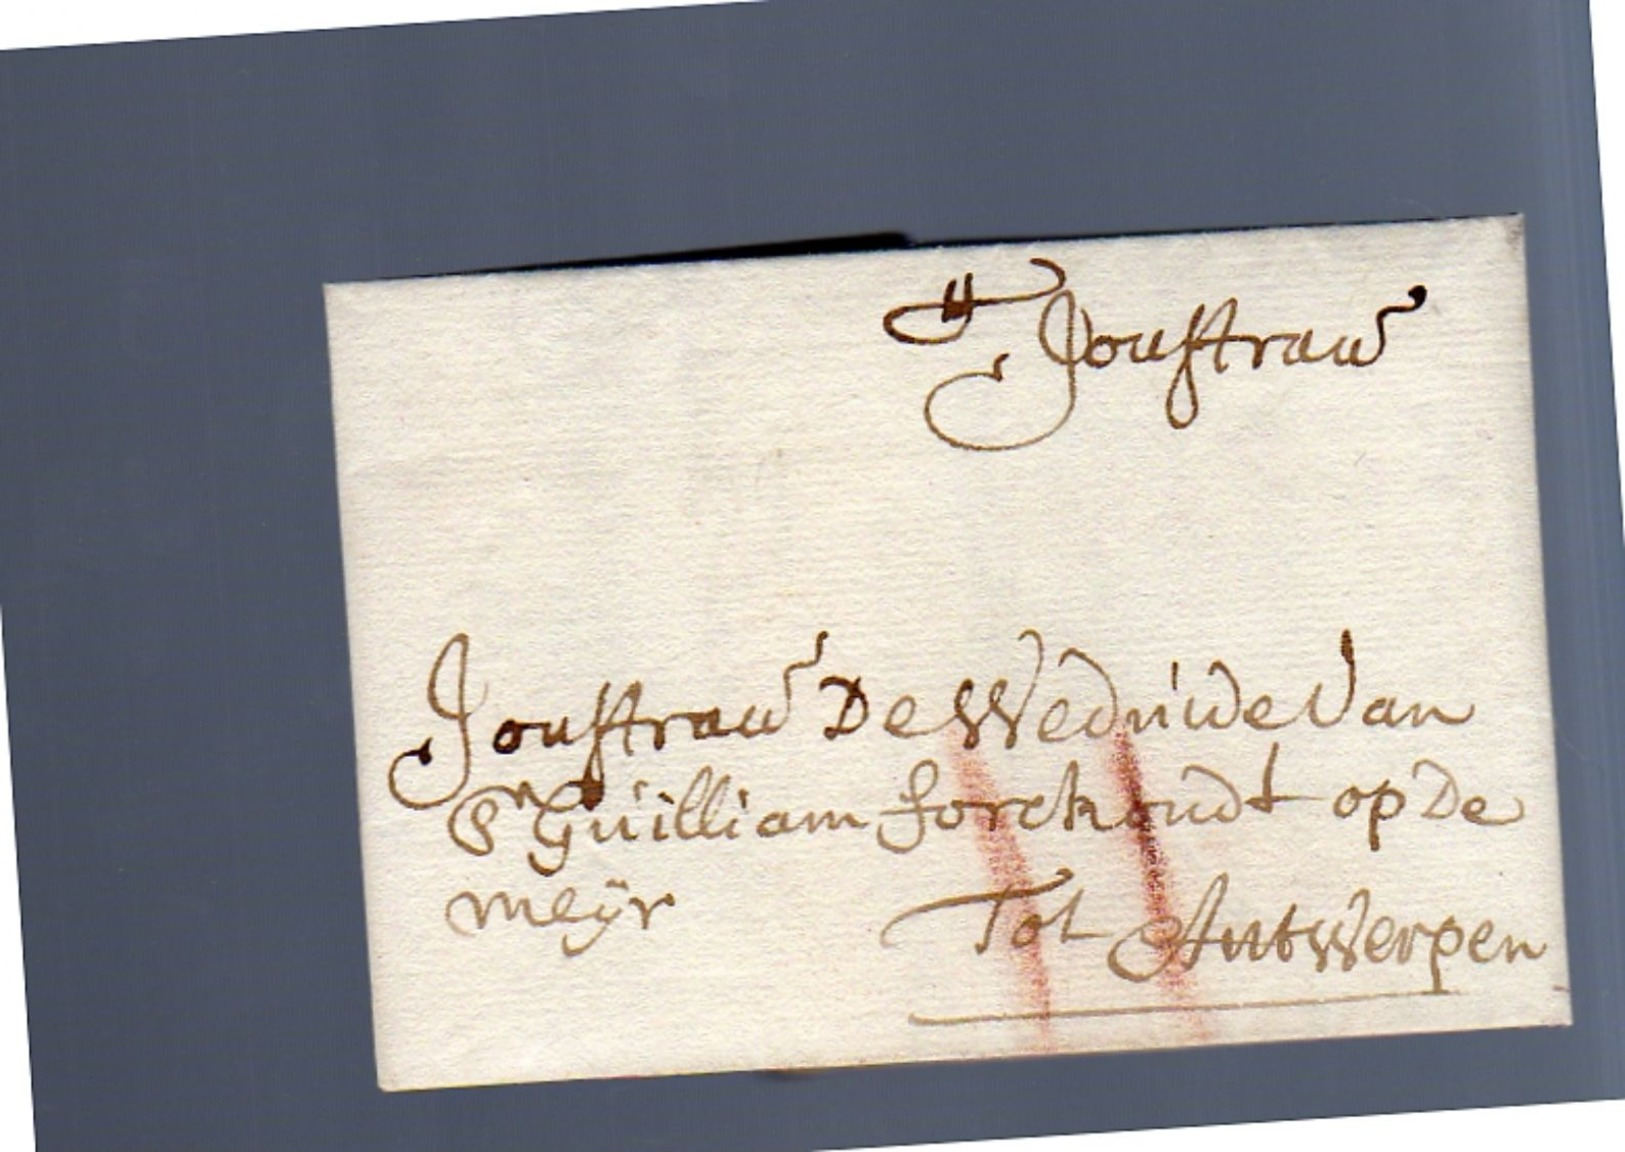 Jouffrauw
Jouffrauw De Weduwe Van
Sr Guilliam forchoudt op De
meÿr Tot Antwerpen